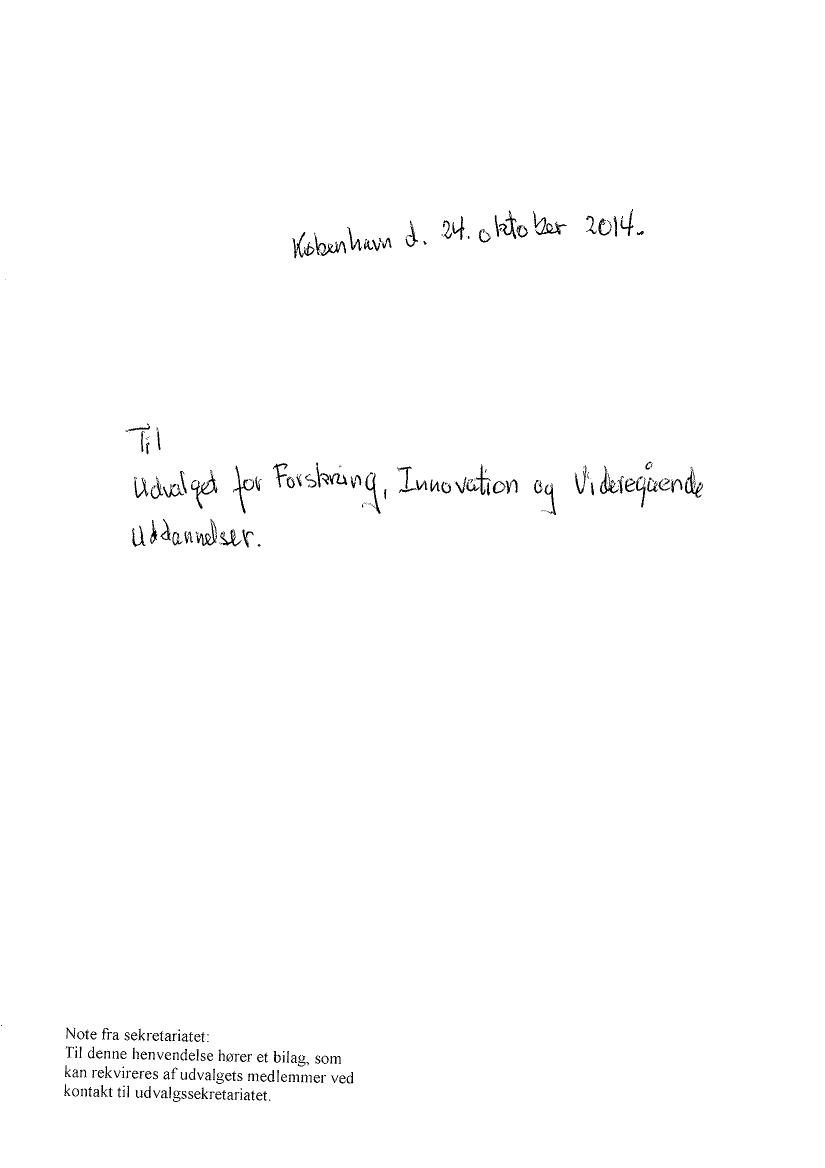 København d. 24. oktober 2014.
Til
Udvalget for Forskning, Innovation og Videregående
Uddannelser.
Note fra sekretariatet:
Til denne henvendelse hører et bilag, som
kan rekvireres af udvalgets medlemmer ved
kontakt til udvalgssekretariatet.